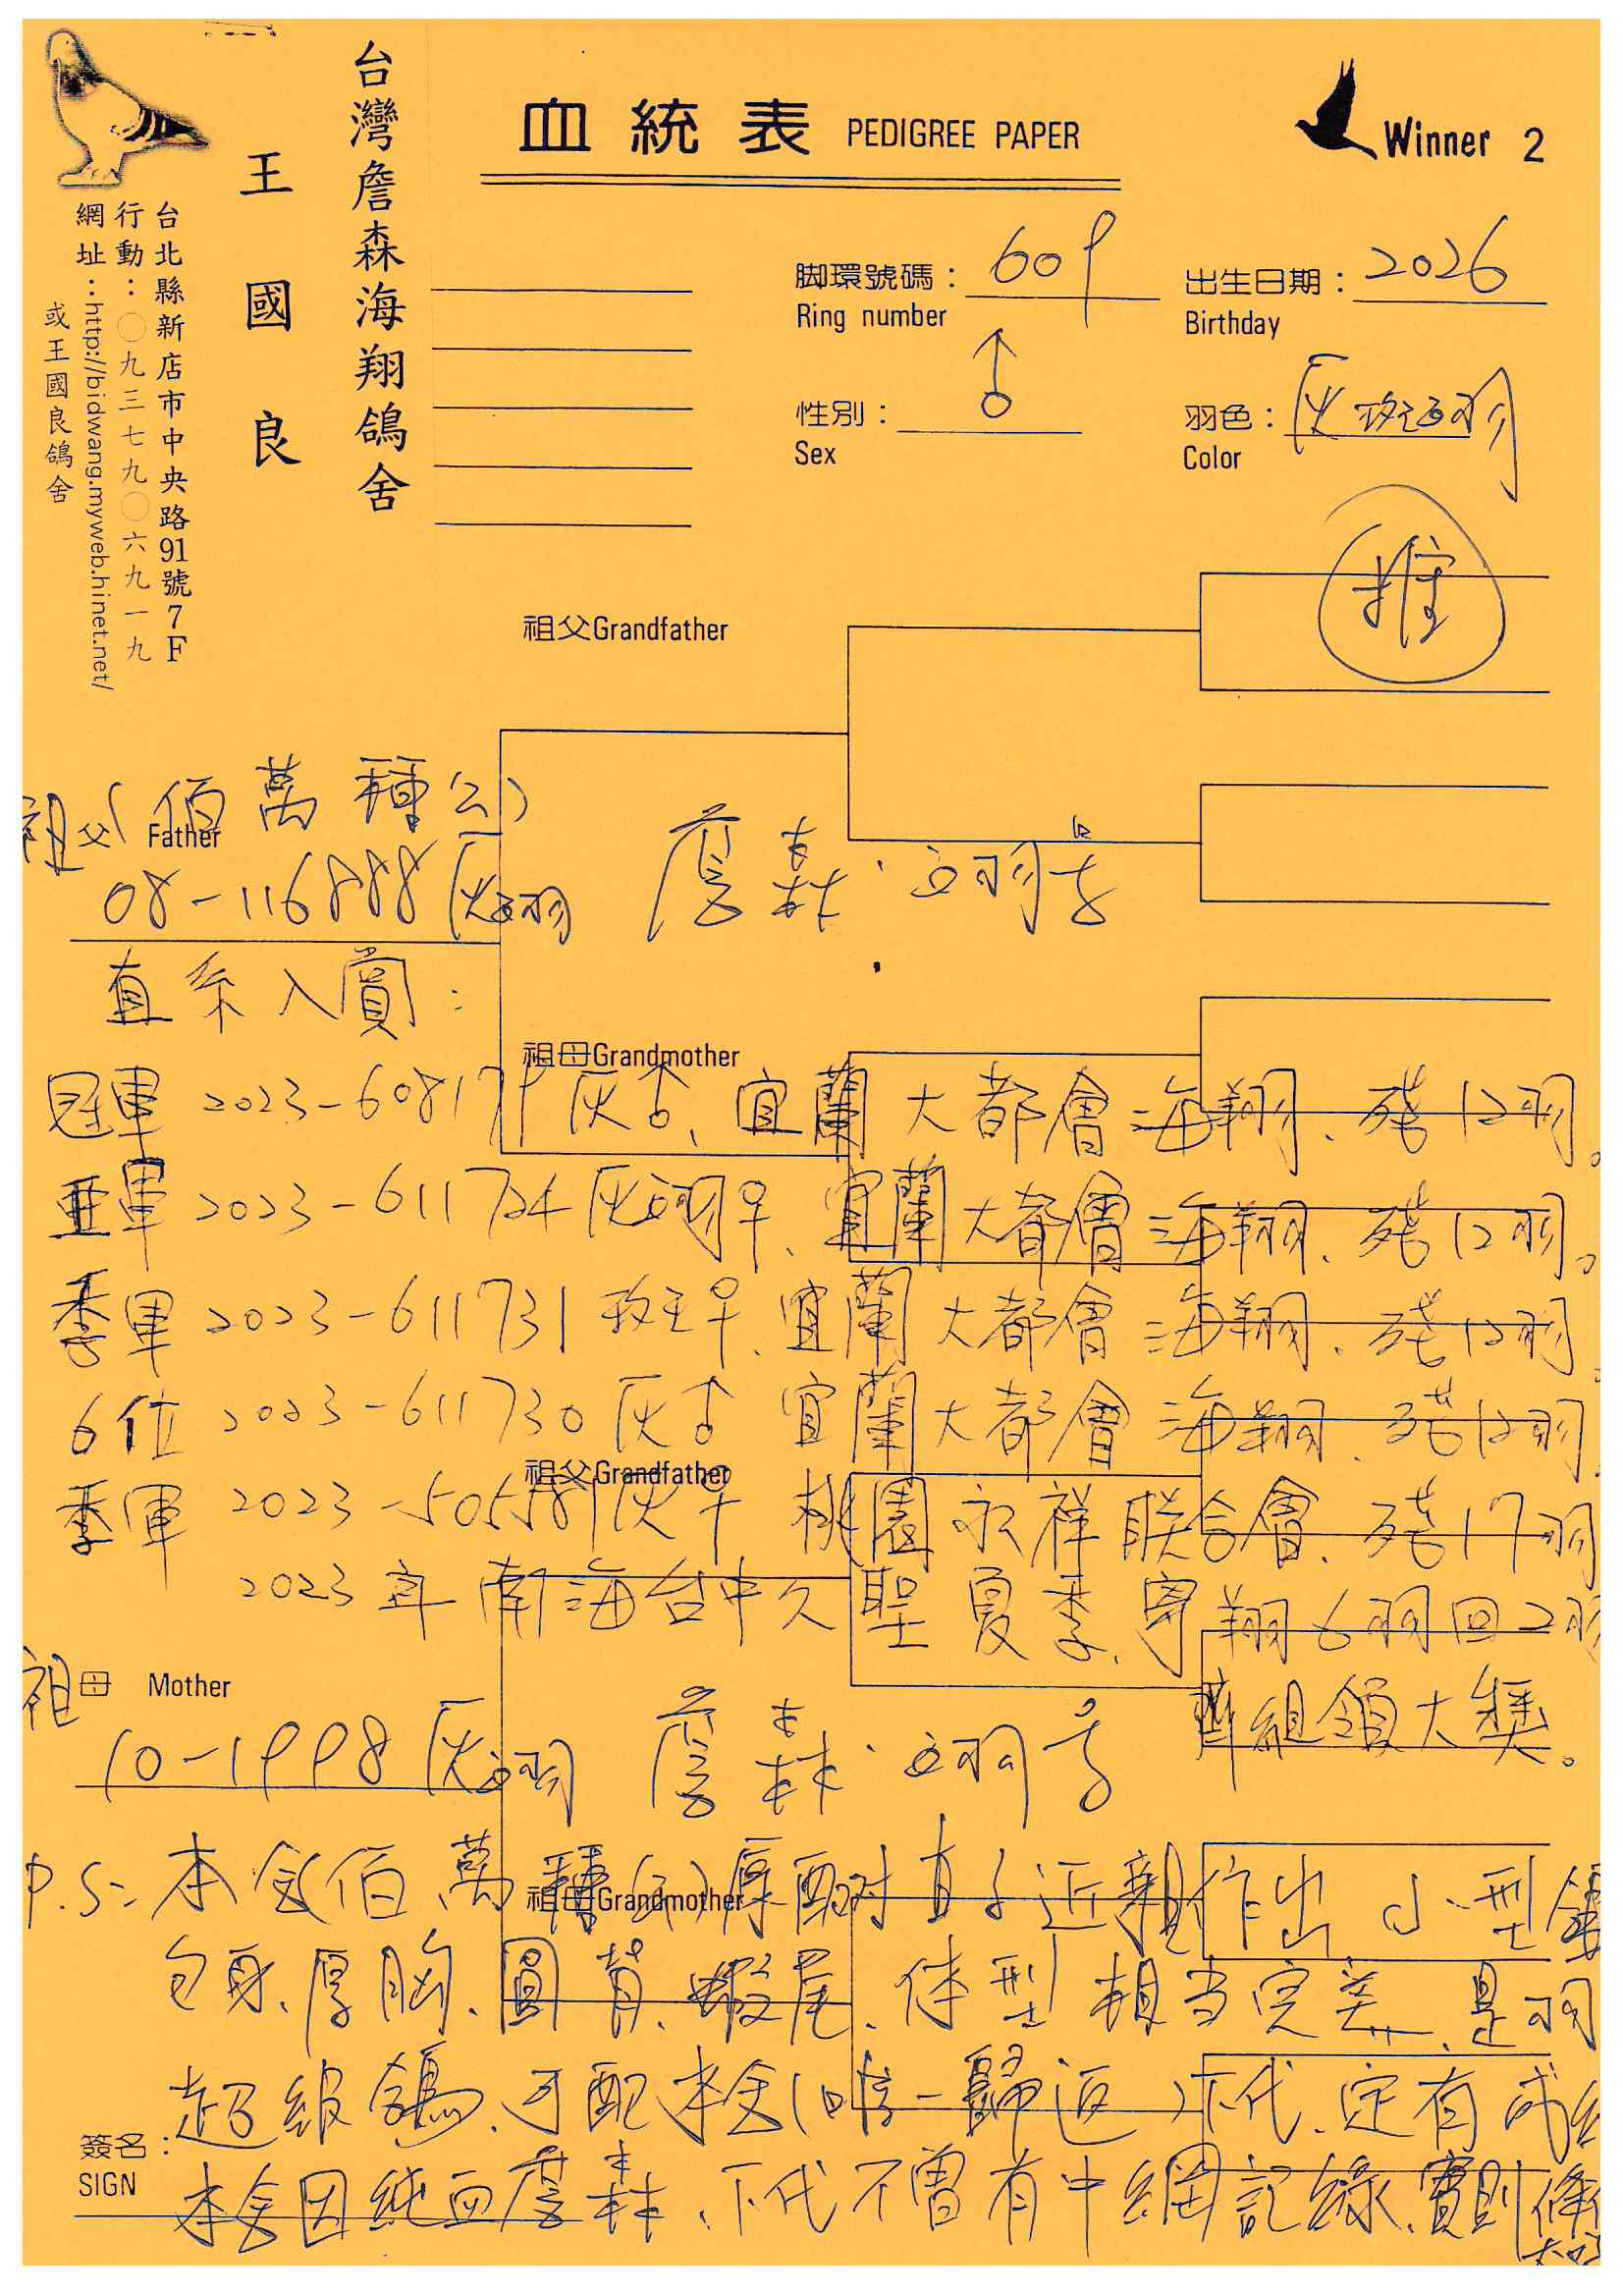 台灣詹森海翔鴿舍
王國良
台北縣新店市中央路91號7F
行動：〇九三七九〇六九一九
網址：http://bidwang.myweb.hinet.net/
或王國良鴿舍
血統表 PEDIGREE PAPER
Winner 2
脚環號碼： 609
Ring number
出生日期： 2026
Birthday
性別： ♂
Sex
羽色： 灰斑白羽
Color
推
祖父Grandfather
祖父 Father (佰萬種公)
08-116888 灰白羽 詹森·白羽号
直系入賞：
祖母Grandmother
冠軍 2023-608179 灰♂、宜蘭大都會海翔、殘12羽。
亞軍 2023-611724 灰白羽♀、宜蘭大都會海翔、殘12羽。
季軍 2023-611731 斑♀、宜蘭大都會海翔、殘12羽
6位 2023-611730 灰♂ 宜蘭大都會海翔、殘12羽
祖父Grandfather
季軍 2023-505581 灰♀ 桃園永祥联合會、殘17羽
2023年南海台中久聖夏季、寄翔6羽回2羽
組領大獎。
祖母 Mother
10-1998 灰白羽 詹森·白羽号
P.S: 本舍(佰萬種公)原配对直子近親作出小型鴿
祖母Grandmother
包身、厚胸、圓背、蝦尾、体型相当完美、是羽
超級鴿、可配本舍(唯一歸返)下代、定有成
簽名：
SIGN
本舍因純血詹森、下代不曾有中網記錄、實則